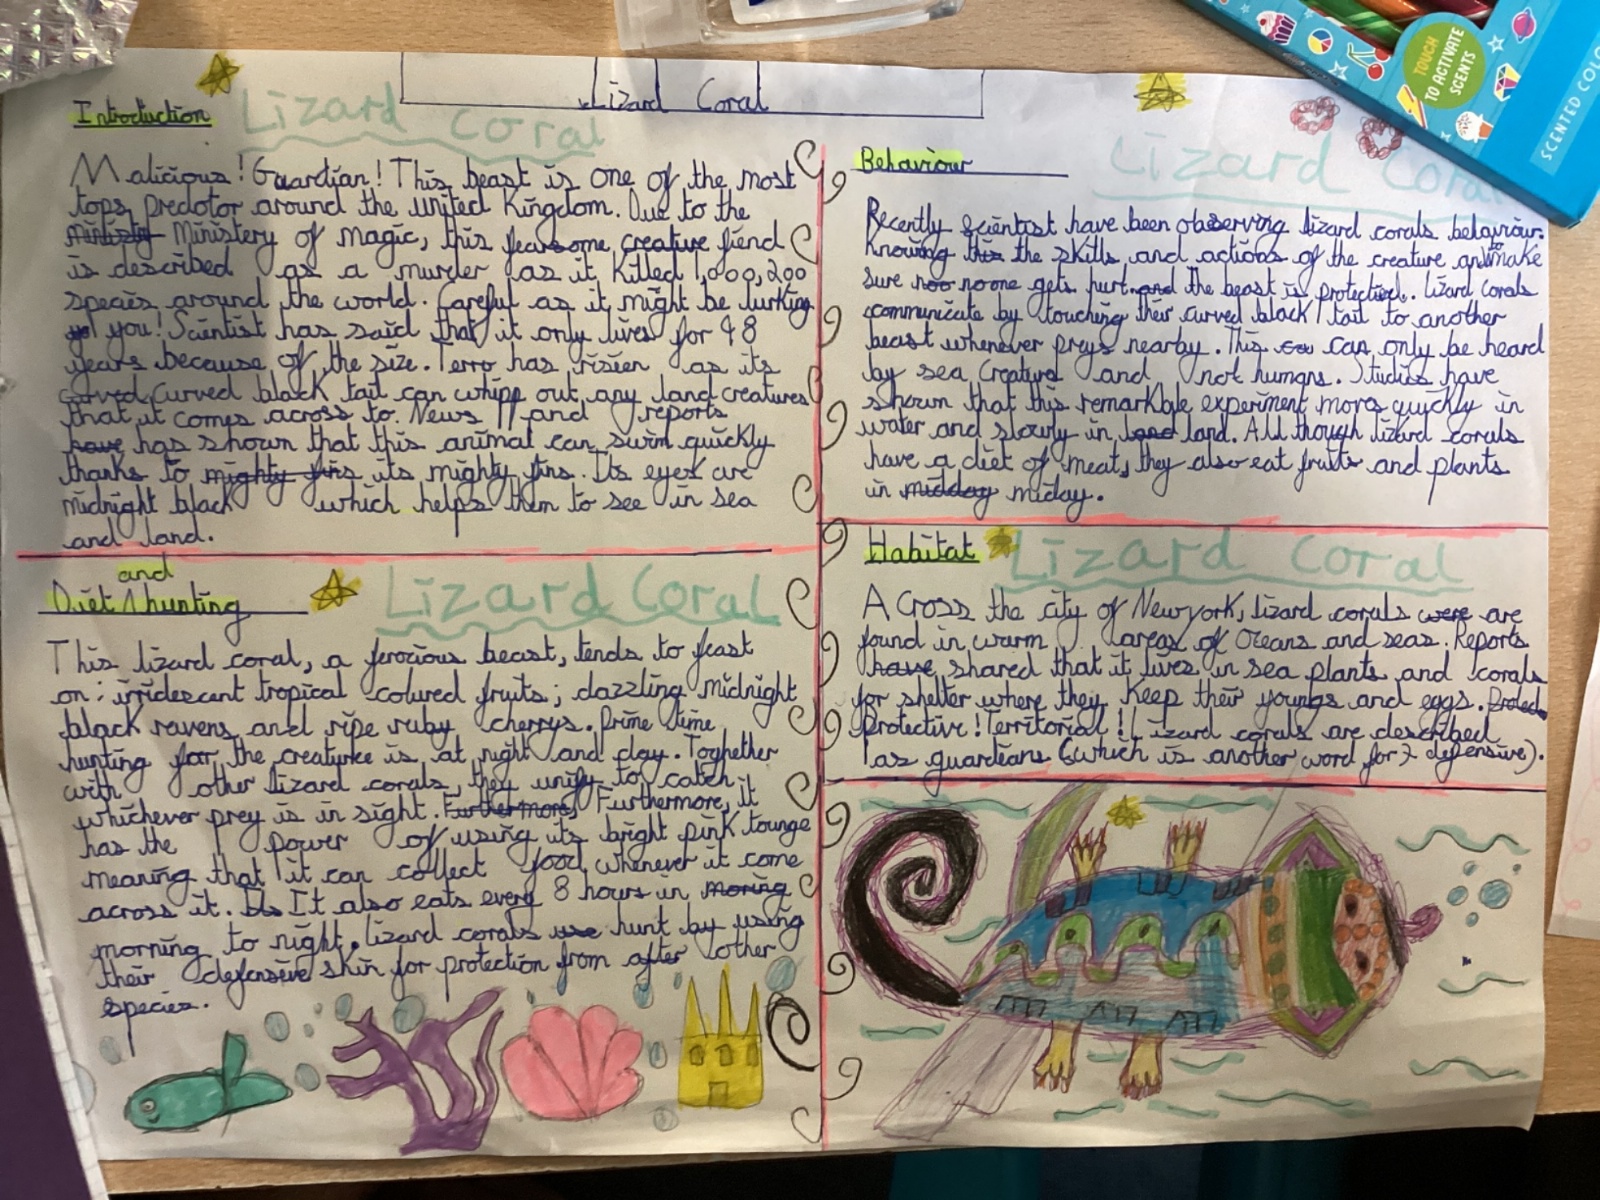 Lizard Coral
Introduction
Lizard Coral
Malicious! Guardian! This beast is one of the most
tops predotor around the united Kingdom. Due to the
ministy Ministery of magic, this fearsome creature fiend
is described as a murder as it killed 1,000,200
species around the world. Careful as it might be lurking
you! Scientist has said that it only lives for 48
years because of the size. Terro has risien as its
curved curved black tait can whipp out any land creatures
that it comes across to. News and reports
have has shown that this animal can swim quickly
thanks to mighty fins its mighty fins. Its eyes are
midnight black which helps them to see in sea
and land.
and
Diet hunting
Lizard Coral
This lizard coral, a ferocious beast, tends to feast
on: irridescent tropical coloured fruits; dazzling midnight
black ravens and ripe ruby cherrys. Prime time
hunting for the creature is at night and day. Toghether
with other lizard corals, they unify to catch
whichever prey is in sight. Furthermore, Furthermore, it
has the power of using its bright pink tounge
meaning that it can collect food whenever it come
across it. Its It also eats every 8 hours in moring
morning to night. lizard corals use hunt by using
their defensive skin for protection from after other
species.
Behaviour
Lizard Coral
Recently scientist have been observing lizard corals behaviour.
Knowing this the skills and actions of the creature and to make
sure noo noone gets hurt and the beast is protected. lizard corals
communicate by touching their curved black tait to another
beast whenever preys nearby. This can only be heard
by sea creatures and not humans. Studies have
shown that this remarkble experiment moves quickly in
water and slowly in land land. All though lizard corals
have a diet of meat, they also eat fruits and plants
in midday miday.
Habitat
Lizard Coral
Across the city of Newyork, lizard corals were are
found in warm areas of oceans and seas. Reports
have shared that it lives in sea plants and corals
for shelter where they keep their youngs and eggs. Protect
Protective! Territorial! Lizard corals are described
as guardians (which is another word for defensive).
TOUCH
TO ACTIVATE
SCENTS